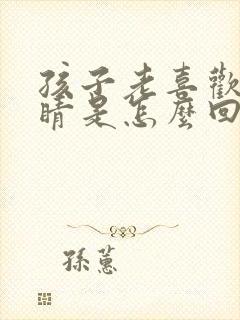 孩子老喜歡
睛是怎麼回
孫蕙